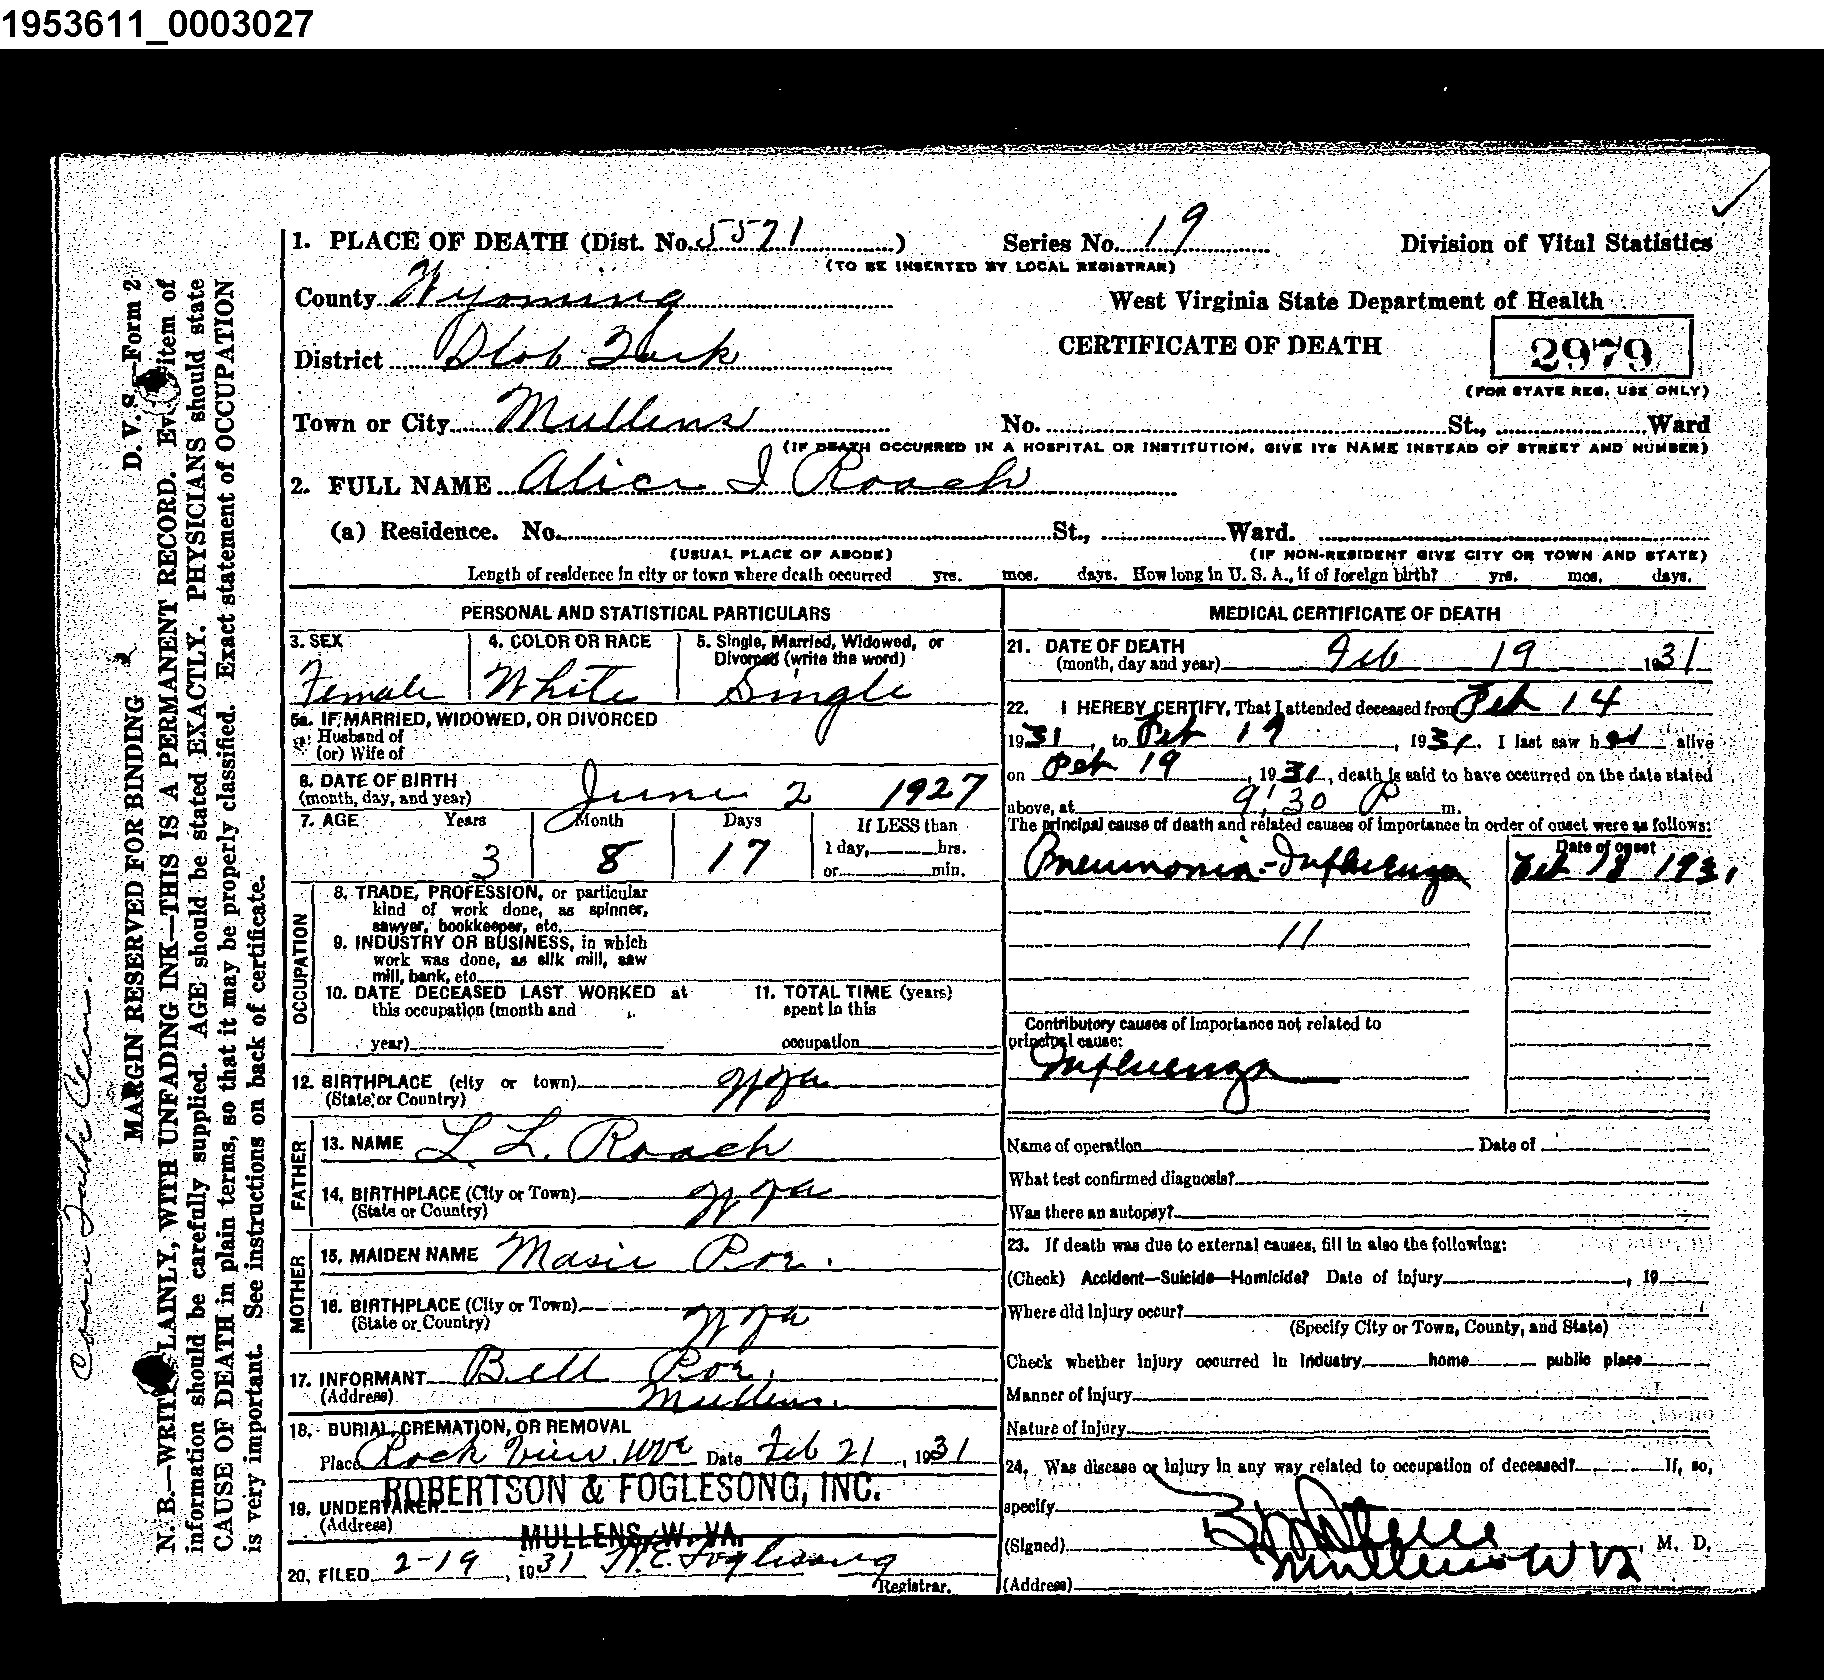 1953611_0003027
1. PLACE OF DEATH (Dist. No. 5571)
Series No. 19
Division of Vital Statistics
(TO BE INSERTED BY LOCAL REGISTRAR)
County Wyoming
West Virginia State Department of Health
District Slab Fork
CERTIFICATE OF DEATH
2979
(FOR STATE REG. USE ONLY)
Town or City Mullens
No. St., Ward
(IF DEATH OCCURRED IN A HOSPITAL OR INSTITUTION, GIVE ITS NAME INSTEAD OF STREET AND NUMBER)
2. FULL NAME Alice I Roach
(a) Residence. No. St., Ward.
(USUAL PLACE OF ABODE) (IF NON-RESIDENT GIVE CITY OR TOWN AND STATE)
Length of residence in city or town where death occurred yrs. mos. days. How long in U. S. A., if of foreign birth? yrs. mos. days.
PERSONAL AND STATISTICAL PARTICULARS
3. SEX 4. COLOR OR RACE 5. Single, Married, Widowed, or
Divorced (write the word)
Female White Single
5a. IF MARRIED, WIDOWED, OR DIVORCED
Husband of
(or) Wife of
6. DATE OF BIRTH
(month, day, and year) June 2 1927
7. AGE Years Month Days If LESS than
3 8 17 1 day, hrs.
or min.
OCCUPATION
8. TRADE, PROFESSION, or particular
kind of work done, as spinner,
sawyer, bookkeeper, etc.
9. INDUSTRY OR BUSINESS, in which
work was done, as silk mill, saw
mill, bank, etc.
10. DATE DECEASED LAST WORKED at 11. TOTAL TIME (years)
this occupation (month and spent in this
year) occupation
12. BIRTHPLACE (city or town) W Va
(State or Country)
FATHER
13. NAME L. L. Roach
14. BIRTHPLACE (City or Town) W Va
(State or Country)
MOTHER
15. MAIDEN NAME Masie Poe.
16. BIRTHPLACE (City or Town) W Va
(State or Country)
17. INFORMANT Bell Poe.
(Address) Mullens.
18. BURIAL, CREMATION, OR REMOVAL
Place Rock View, W Va Date Feb 21, 1931
ROBERTSON & FOGLESONG, INC.
19. UNDERTAKER
(Address)
MULLENS, W. VA.
20. FILED 2-19, 1931 W.C. Foglesong
Registrar.
MEDICAL CERTIFICATE OF DEATH
21. DATE OF DEATH
(month, day and year) Feb 19 1931
22. I HEREBY CERTIFY, That I attended deceased from Feb 14
1931, to Feb 19, 1931. I last saw her alive
on Feb 19, 1931, death is said to have occurred on the date stated
above, at 9:30 P m.
The principal cause of death and related causes of importance in order of onset were as follows:
Date of onset
Pneumonia-Influenza Feb 18 1931
11
Contributory causes of importance not related to
principal cause:
Influenza
Name of operation Date of
What test confirmed diagnosis?
Was there an autopsy?
23. If death was due to external causes, fill in also the following:
(Check) Accident—Suicide—Homicide? Date of injury, 19
Where did injury occur?
(Specify City or Town, County, and State)
Check whether injury occurred in industry home public place
Manner of injury
Nature of injury
24. Was disease or injury in any way related to occupation of deceased? If, so,
specify
(Signed), M. D.
(Address) Mullens W Va
D. V. S.—Form 2
MARGIN RESERVED FOR BINDING
N. B.—WRITE PLAINLY, WITH UNFADING INK—THIS IS A PERMANENT RECORD. Every item of
information should be carefully supplied. AGE should be stated EXACTLY. PHYSICIANS should state
CAUSE OF DEATH in plain terms, so that it may be properly classified. Exact statement of OCCUPATION
is very important. See instructions on back of certificate.